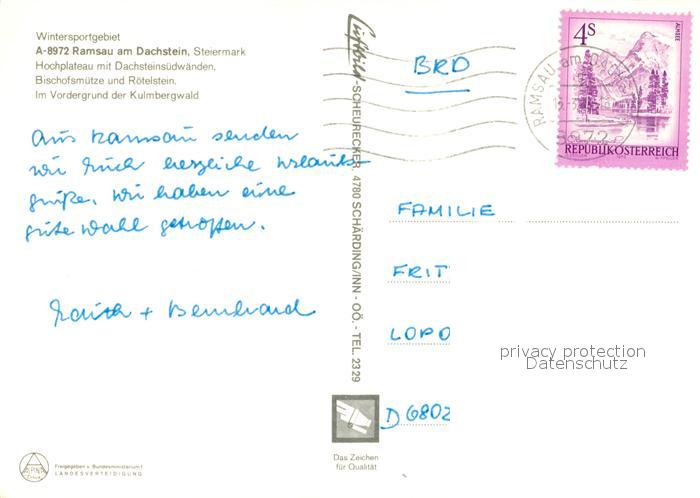 Wintersportgebiet
A-8972 Ramsau am Dachstein, Steiermark
Hochplateau mit Dachsteinsüdwänden,
Bischofsmütze und Rötelstein.
Im Vordergrund der Kulmbergwald
Aus Ramsau senden
wir Euch herzliche Urlaubs-
grüße. Wir haben eine
gute Wahl getroffen.
+ Bernhard
Luftbild-SCHEURECKER, 4780 SCHÄRDING/INN - OÖ. - TEL. 2329
BRD
4S
ALMSEE
REPUBLIK ÖSTERREICH
RAMSAU am DACHS
8972
FAMILIE
FRIT
LOPO
D 6802
privacy protection
Datenschutz
Das Zeichen
für Qualität
ALPINE
Freigegeben v. Bundesministerium f.
LANDESVERTEIDIGUNG